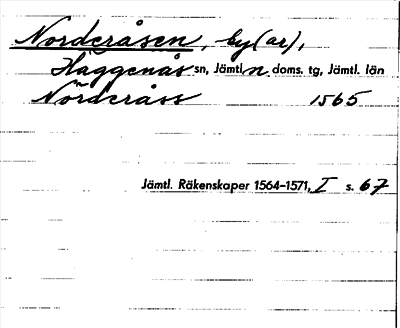 Norderåsen, by(ar),
Häggenås sn, Jämtl. n doms. tg, Jämtl. län
Norderåss 1565
Jämtl. Räkenskaper 1564–1571, I s. 67